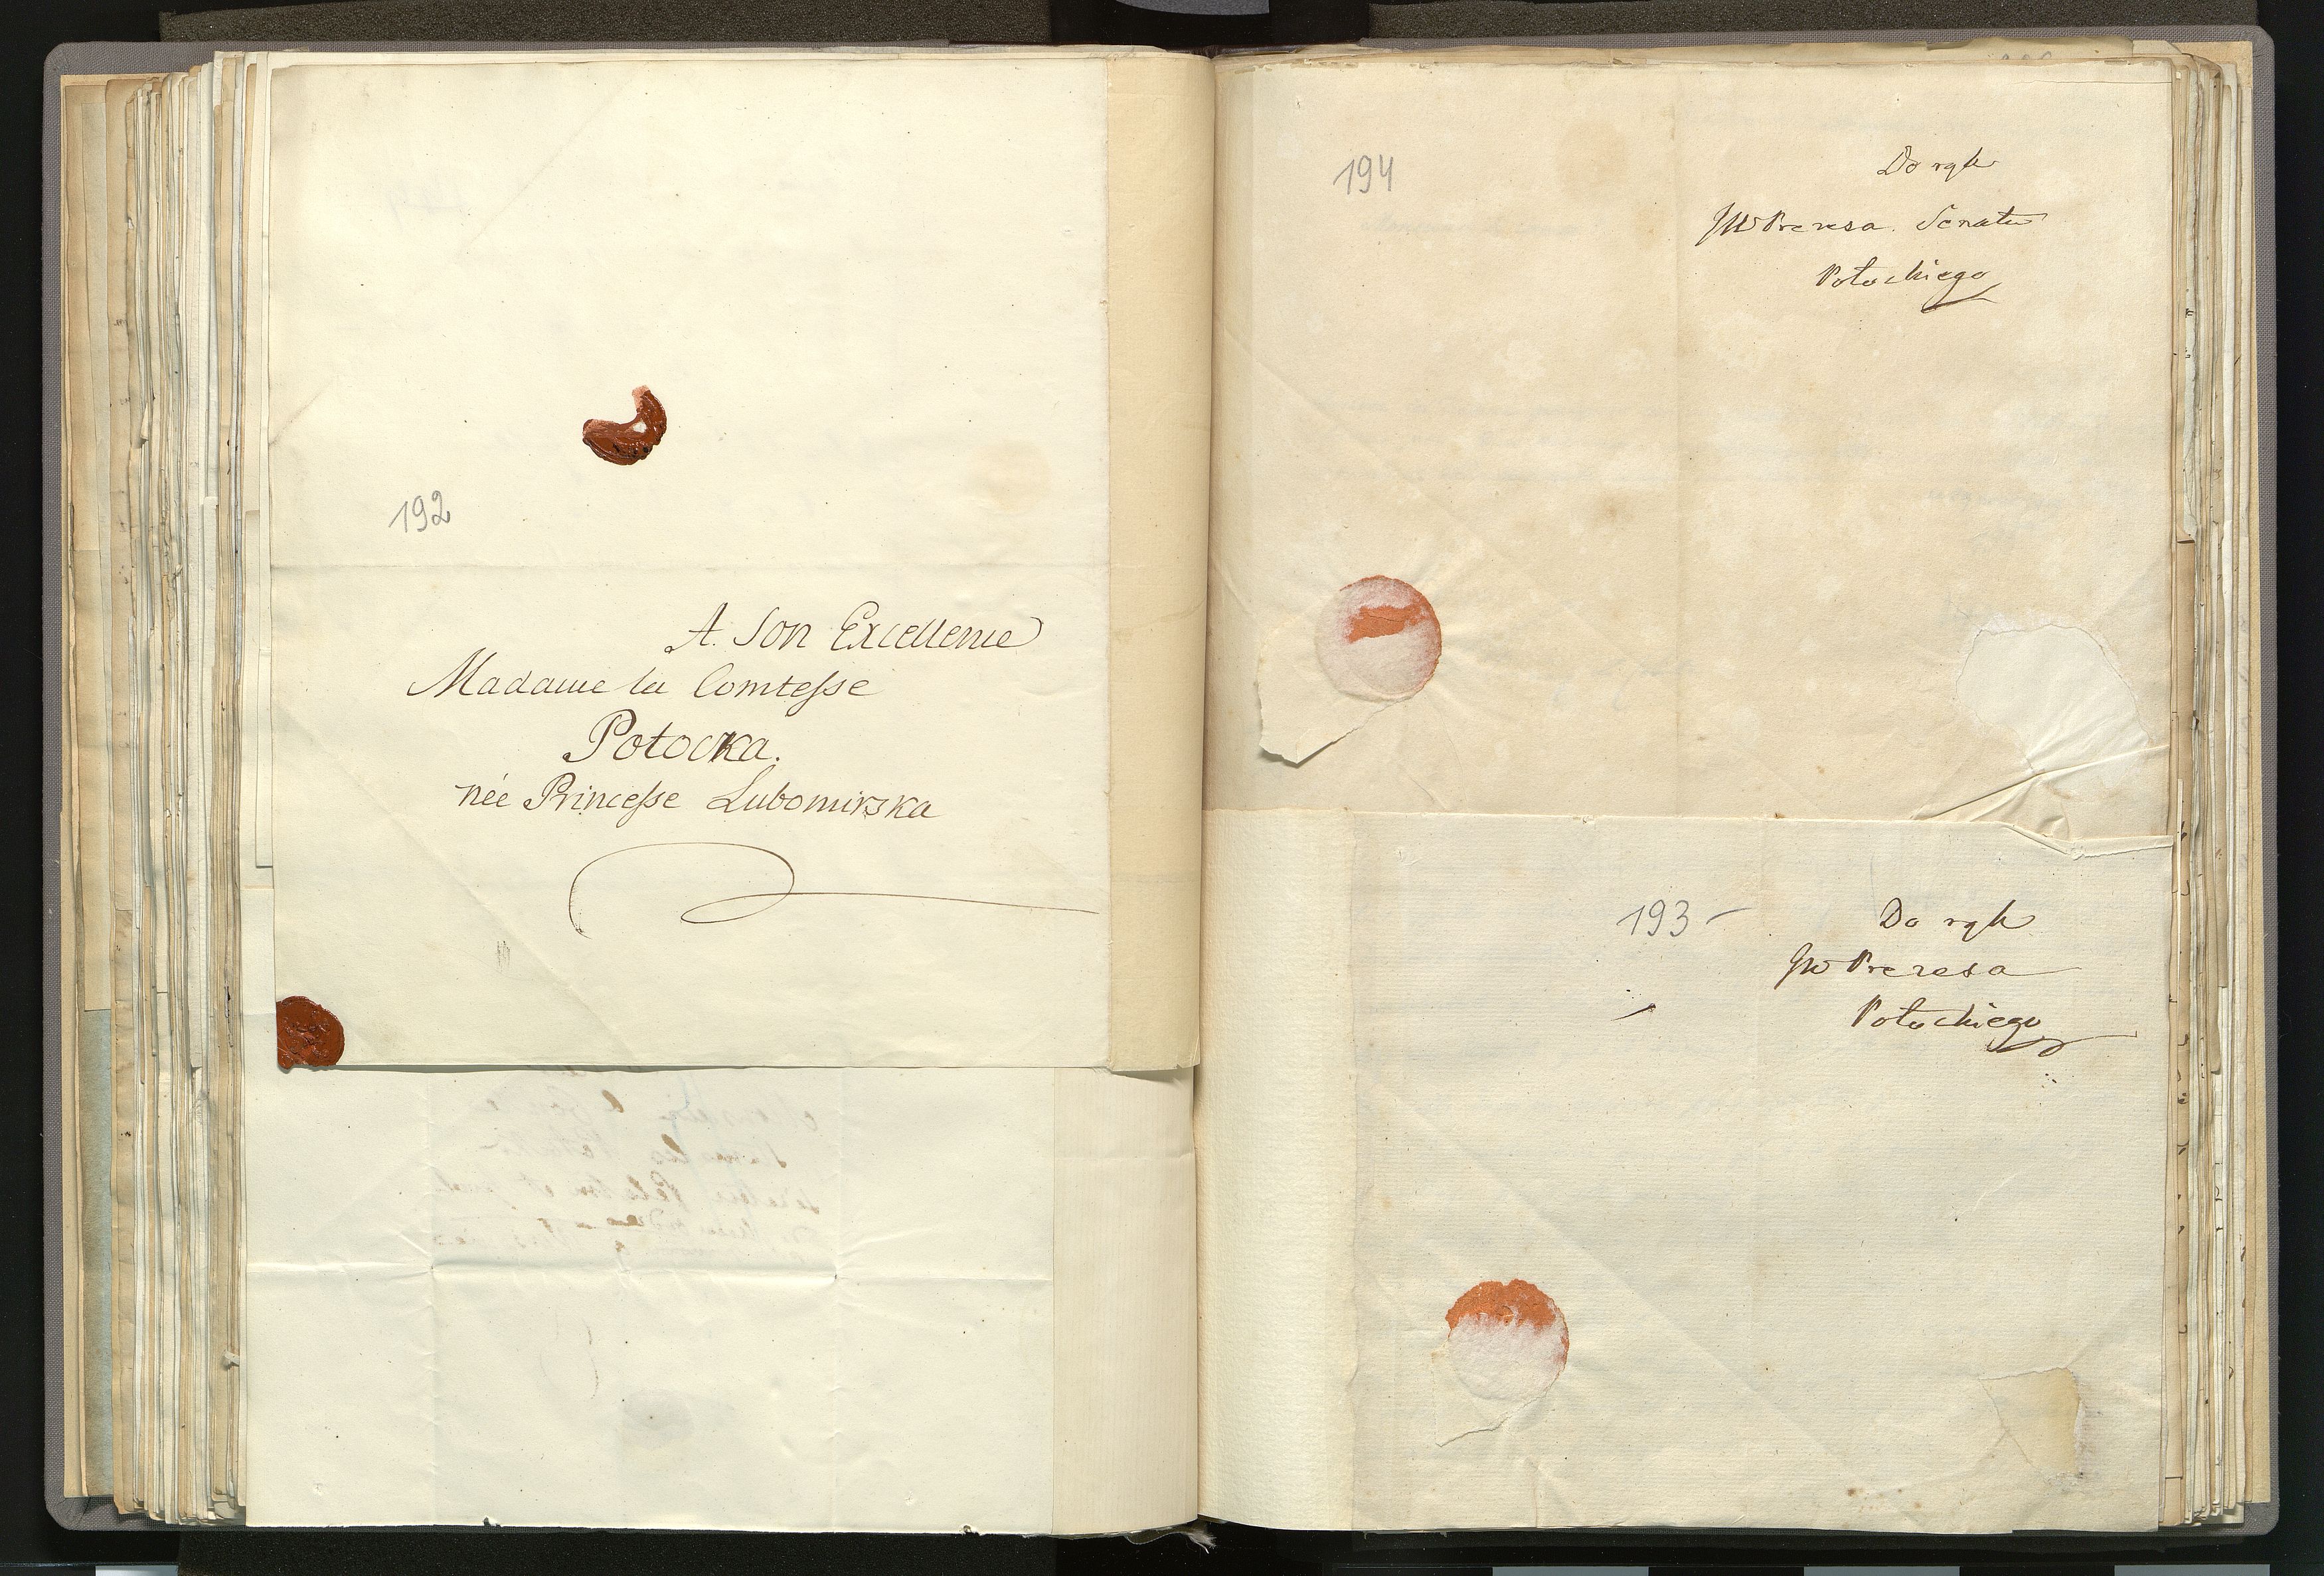 192
A Son Excellence
Madame la Comtesse
Potocka.
née Princesse Lubomirska
194
Do rąk
JW Prezesa Senatu
Potockiego
193
Do rąk
JW Prezesa
Potockiego